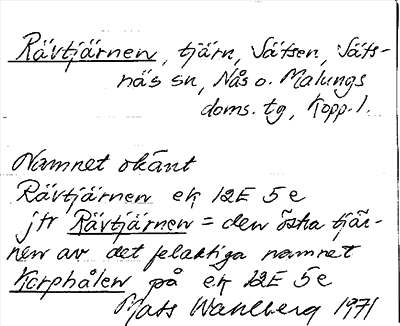 Rävtjärnen, tjärn, Sätsen, Säts-
näs sn, Nås o. Malungs
doms. tg, Kopp. l.
Namnet okänt
Rävtjärnen ek 12E 5e
jfr Rävtjärnen = den östra tjär-
nen av det felaktiga namnet
Korphålen på ek 12E 5e
Mats Wahlberg 1971